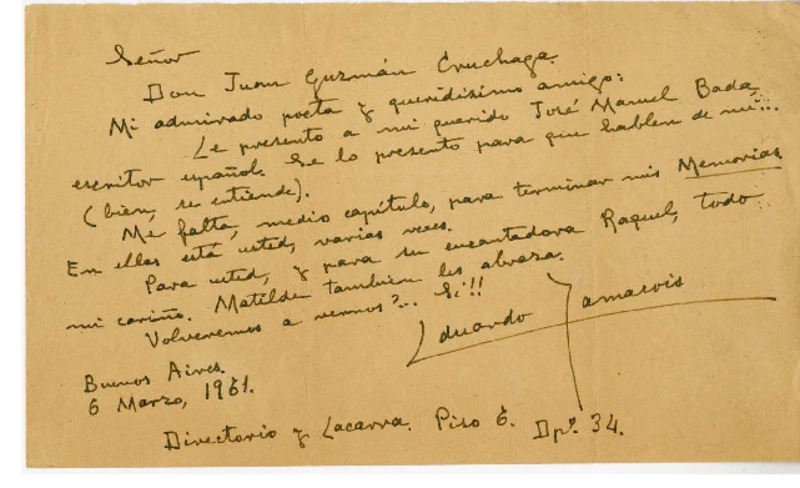 Señor
Don Juan Guzmán Cruchaga.
Mi admirado poeta y queridísimo amigo:
Le presento a mi querido José Manuel Bada,
escritor español. Se lo presento para que hablen de mí...
(bien, se entiende).
Me falta, medio capítulo, para terminar mis Memorias.
En ellas está usted, varias veces.
Para usted, y para su encantadora Raquel, todo
mi cariño. Matilde también les abraza.
Volveremos a vernos?... Sí!!
Eduardo
Buenos Aires.
6 Marzo, 1961.
Directorio y Lacarra. Piso 6. Dpº. 34.